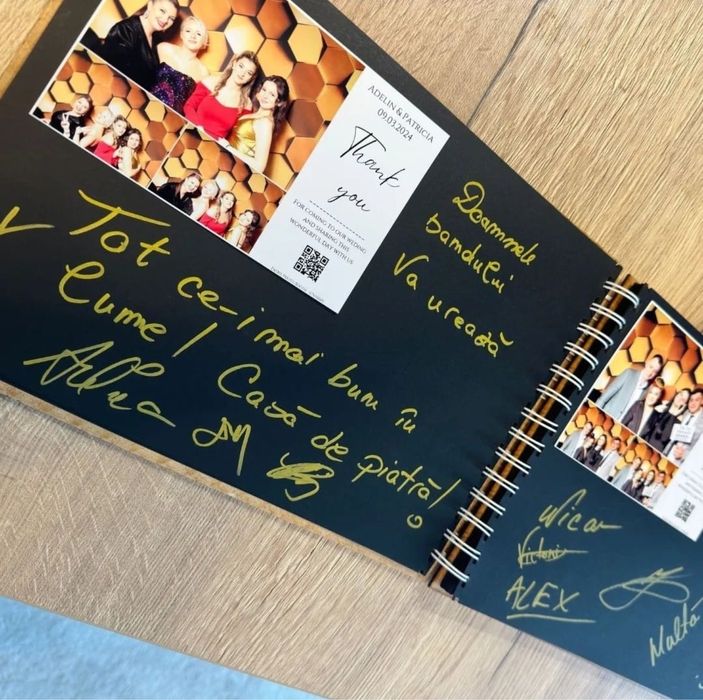 ADELIN & PATRICIA
09.03.2024
Thank
you
FOR COMING TO OUR WEDING
AND SHARING THIS
WONDERFUL DAY WITH US
Doamnele
bandului
Va urează
Tot ce-i mai bun în
lume! Casă de piatră!
ALEX
Maltă